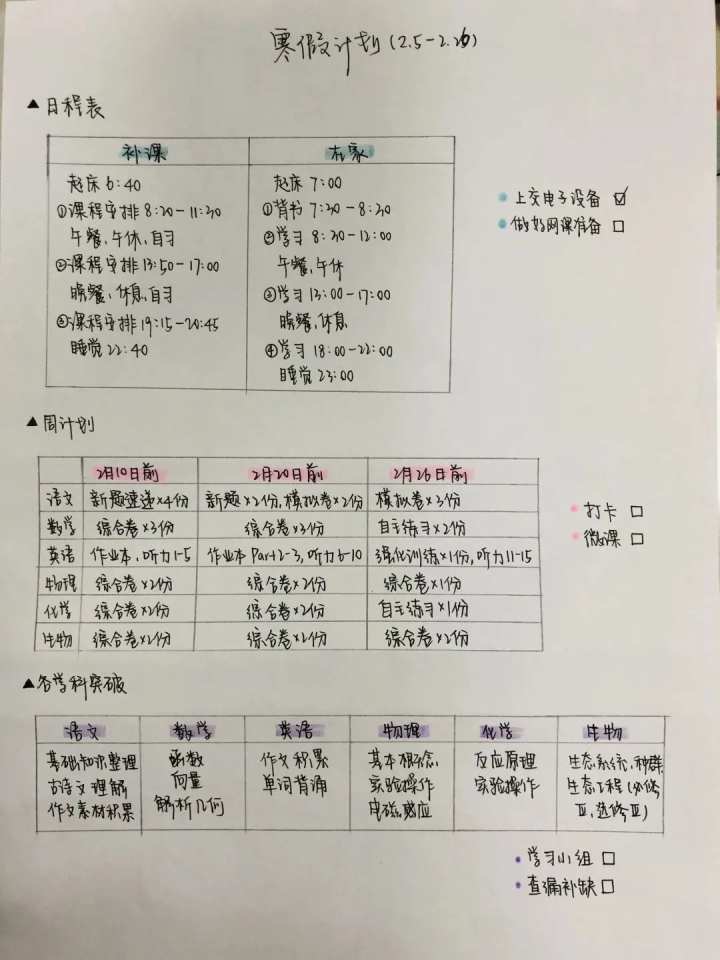 寒假计划(2.5-2.26)
▲日程表
补课 在家
起床 6:40 起床 7:00
①课程安排 8:20-11:30 ①背书 7:30-8:30
午餐、午休、自习 ②学习 8:30-12:00
②课程安排 13:50-17:00 午餐、午休
晚餐、休息、自习 ③学习 13:00-17:00
③课程安排 19:15-20:45 晚餐、休息
睡觉 22:40 ④学习 18:00-22:00
睡觉 23:00
上交电子设备 ☑
做好网课准备 □
▲周计划
2月10日前 2月20日前 2月26日前
语文 新题速递×4份 新题×2份,模拟卷×2份 模拟卷×3份
数学 综合卷×3份 综合卷×3份 自主练习×2份
英语 作业本、听力1-5 作业本 Part2-3,听力6-10 强化训练×1份,听力11-15
物理 综合卷×2份 综合卷×2份 综合卷×1份
化学 综合卷×2份 综合卷×2份 自主练习×1份
生物 综合卷×2份 综合卷×2份 综合卷×2份
打卡 □
微课 □
▲各学科突破
语文 数学 英语 物理 化学 生物
基础知识整理 函数 作文积累 基本概念、 反应原理 生态系统、种群、
古诗文理解 向量 单词背诵 实验操作 实验操作 生态工程(必修
作文素材积累 解析几何 电磁感应 Ⅲ、选修Ⅲ)
学习小组 □
查漏补缺 □